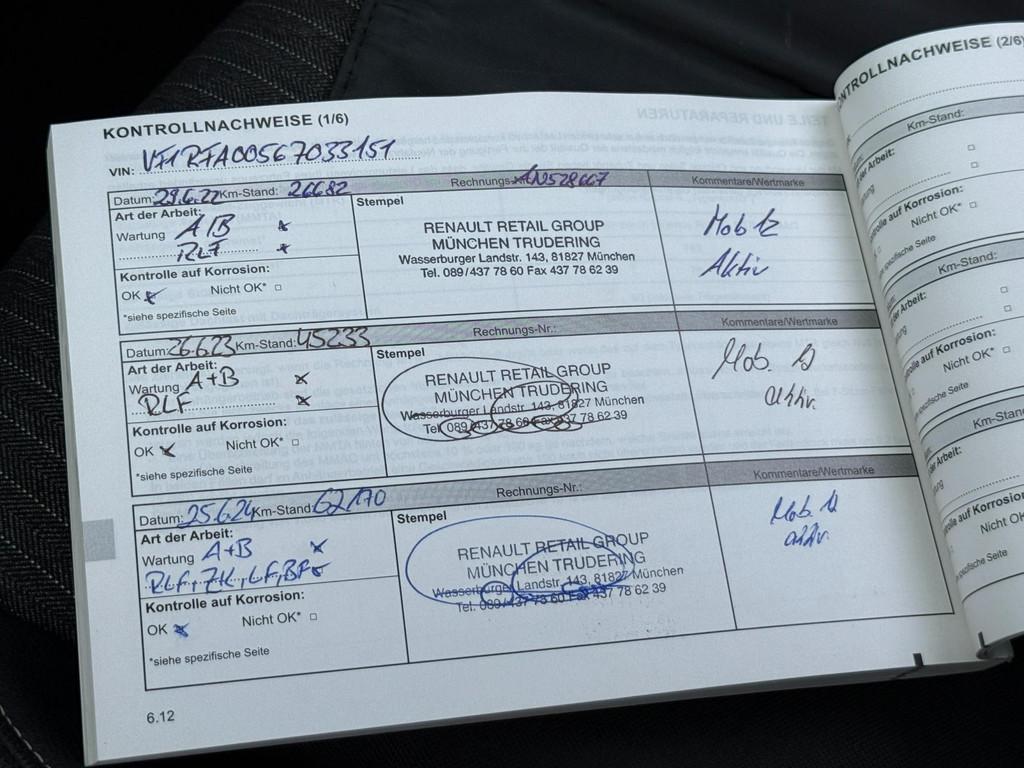 KONTROLLNACHWEISE (1/6)
VIN: VF1RFA00567033151
Datum: 29.6.22 Km-Stand: 26682 Rechnungs-
Kommentare/Wertmarke
Art der Arbeit:
Wartung A/B x
RLF x
Kontrolle auf Korrosion:
OK x Nicht OK* □
*siehe spezifische Seite
Stempel
RENAULT RETAIL GROUP
MÜNCHEN TRUDERING
Wasserburger Landstr. 143, 81827 München
Tel. 089/437 78 60 Fax 437 78 62 39
Aktiv
Datum: 26.6.23 Km-Stand: 45233 Rechnungs-Nr.:
Kommentare/Wertmarke
Art der Arbeit:
Wartung A+B x
RLF x
Kontrolle auf Korrosion:
OK x Nicht OK* □
*siehe spezifische Seite
Stempel
RENAULT RETAIL GROUP
MÜNCHEN TRUDERING
Wasserburger Landstr. 143, 81827 München
Tel. 089/437 78 60 Fax 437 78 62 39
Mob.
aktiv.
Datum: 25.6.24 Km-Stand: 62170 Rechnungs-Nr.:
Kommentare/Wertmarke
Art der Arbeit:
Wartung A+B x
RLF, ZK, LF, BF x
Kontrolle auf Korrosion:
OK x Nicht OK* □
*siehe spezifische Seite
Stempel
RENAULT RETAIL GROUP
MÜNCHEN TRUDERING
Wasserburger Landstr. 143, 81827 München
Tel. 089/437 78 60 Fax 437 78 62 39
Mob.
aktiv.
6.12
ONTROLLNACHWEISE (2/6)
Km-Stand:
Arbeit:
Kontrolle auf Korrosion:
Nicht OK* □
spezifische Seite
Km-Stand:
der Arbeit:
Kontrolle auf Korrosion:
Nicht OK* □
spezifische Seite
Km-Stand
der Arbeit:
Kontrolle auf Korrosion:
Nicht OK
spezifische Seite